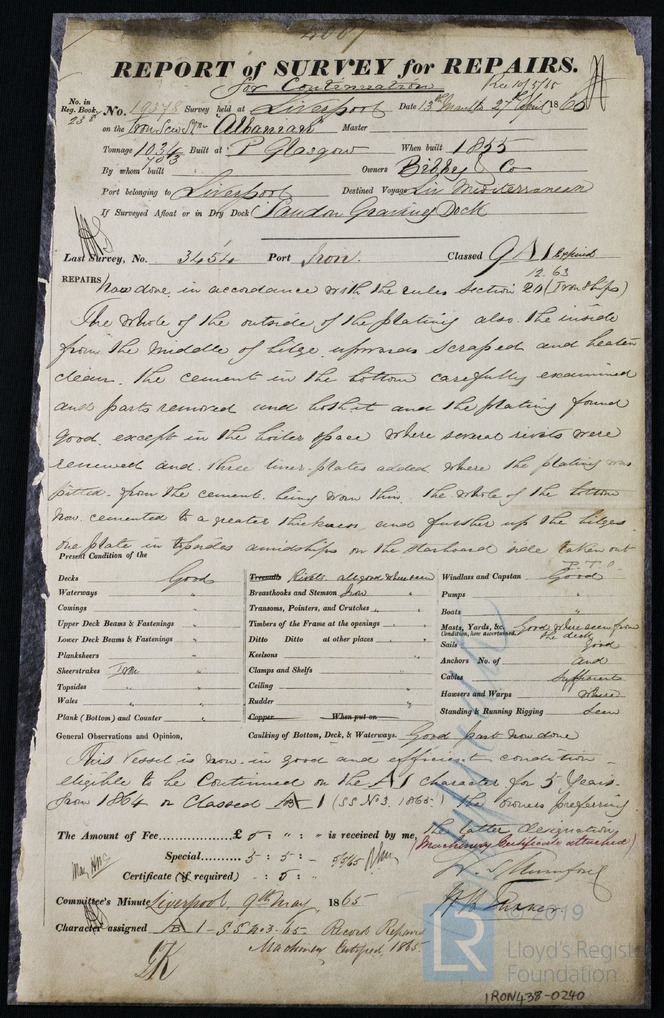 4667
REPORT of SURVEY for REPAIRS.
For Continuation Rec 10/5/65
No. in Reg. Book, 238 No. 19378 Survey held at Liverpool Date 13th March & 27th April 1865
on the Iron Screw Str Albanian Master
Tonnage 1034 703 Built at P Glasgow When built 1855
By whom built Owners Bibby & Co
Port belonging to Liverpool Destined Voyage Liv Mediterranean
If Surveyed Afloat or in Dry Dock Sandon Graving Dock
Last Survey, No. 3454 Port Iron. Classed 9 A1 Expired 12.63
REPAIRS now done in accordance with the rules Section 20 (Iron Ships)
The whole of the outside of the plating also the inside
from the middle of bilge upwards scraped and beaten
clean. the cement in the bottom carefully examined
and parts removed and both it and the plating found
good, except in the boiler space where several rivets were
renewed and three liner plates added where the plating was
pitted from the cement being worn thin. the whole of the bottom
now cemented to a greater thickness and further up the bilges
one plate in topsides amidships on the starboard side taken out
P.T.O.
Present Condition of the
Decks Good
Waterways "
Comings "
Upper Deck Beams & Fastenings "
Lower Deck Beams & Fastenings "
Planksheers "
Sheerstrakes Iron "
Topsides "
Wales "
Plank (Bottom) and Counter "
Treenails Rivets all good where seen
Breasthooks and Stemson Iron "
Transoms, Pointers, and Crutches "
Timbers of the Frame at the openings "
Ditto Ditto at other places "
Keelsons "
Clamps and Shelfs "
Ceiling "
Rudder "
Copper When put on
Windlass and Capstan Good
Pumps "
Boats "
Masts, Yards, &c. Good where seen from
Condition, how ascertained. the deck
Sails good
Anchors No. of and
Cables Sufficient
Hawsers and Warps where
Standing & Running Rigging seen
General Observations and Opinion, Caulking of Bottom, Deck, & Waterways. Good part now done
This Vessel is now in good and efficient condition
eligible to be Continued on the A1 character for 5 Years
from 1864 or Classed A 1 (SS No 3. 1865.) the owners preferring
the latter designation
(Machinery Certificate attached)
The Amount of Fee £ 5 : " : " is received by me,
Special 5 : 5 : - 5/5/65
Certificate (if required) - : 5 : -
Committee's Minute Liverpool 9th May 1865
Character assigned A 1 - SS No 3-65 Record Repairs
Machinery Certified, 1865.
© 2019
LR
Lloyd's Register
Foundation
IRON438-0240